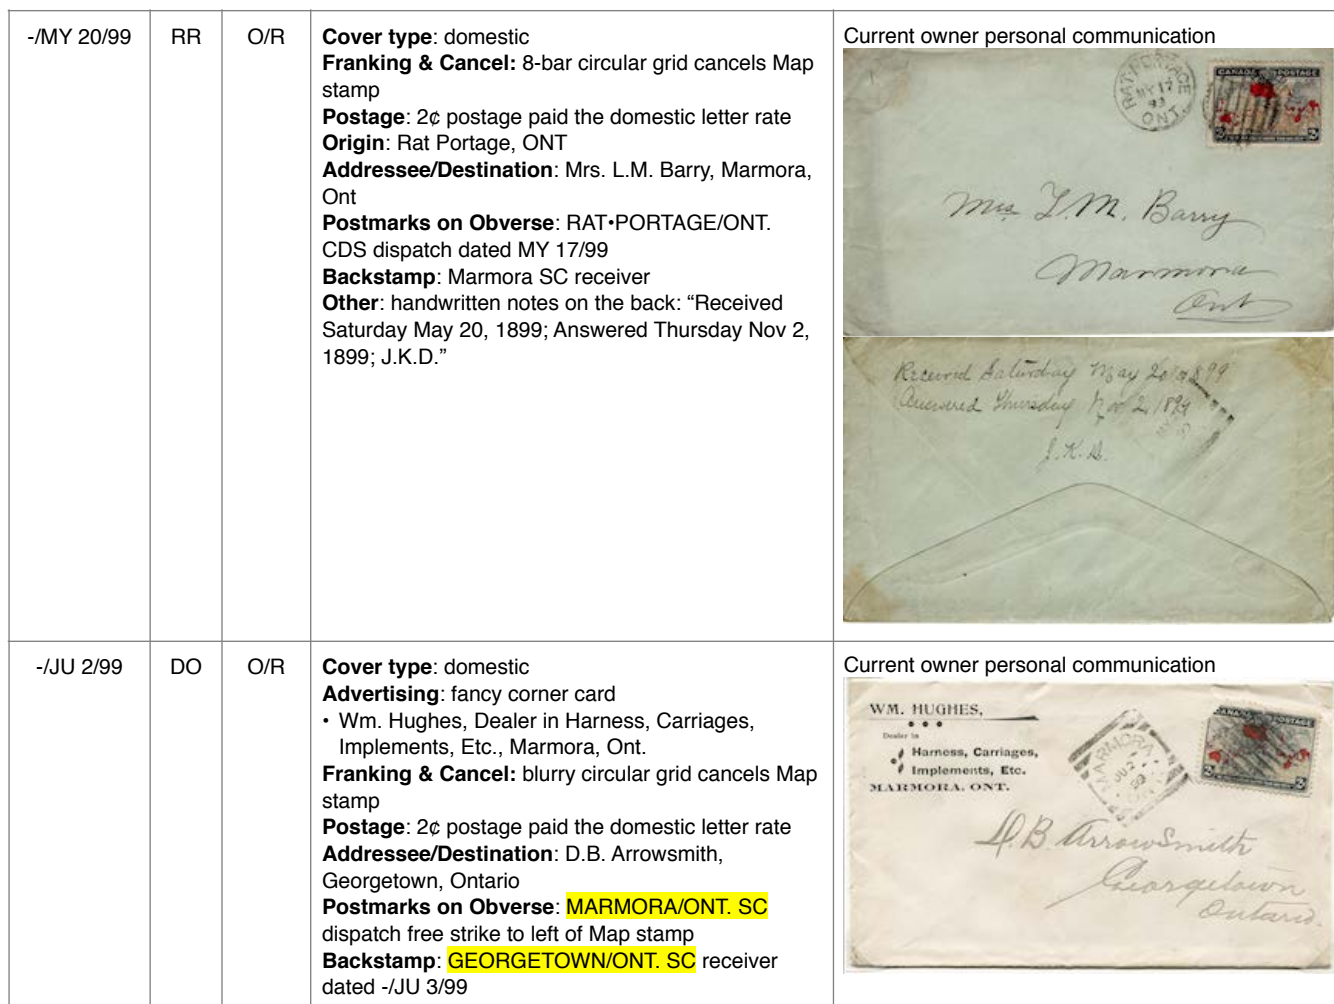 -/MY 20/99
RR
O/R
Cover type: domestic
Franking & Cancel: 8-bar circular grid cancels Map
stamp
Postage: 2¢ postage paid the domestic letter rate
Origin: Rat Portage, ONT
Addressee/Destination: Mrs. L.M. Barry, Marmora,
Ont
Postmarks on Obverse: RAT•PORTAGE/ONT.
CDS dispatch dated MY 17/99
Backstamp: Marmora SC receiver
Other: handwritten notes on the back: “Received
Saturday May 20, 1899; Answered Thursday Nov 2,
1899; J.K.D.”
Current owner personal communication
RAT PORTAGE
MY 17
99
ONT.
CANADA POSTAGE
2
2
Mrs L.M. Barry
Marmora
Ont
Received Saturday May 20 1899
Answered Thursday Nov 2 1899
J.K.D.
-/JU 2/99
DO
O/R
Cover type: domestic
Advertising: fancy corner card
• Wm. Hughes, Dealer in Harness, Carriages,
Implements, Etc., Marmora, Ont.
Franking & Cancel: blurry circular grid cancels Map
stamp
Postage: 2¢ postage paid the domestic letter rate
Addressee/Destination: D.B. Arrowsmith,
Georgetown, Ontario
Postmarks on Obverse: MARMORA/ONT. SC
dispatch free strike to left of Map stamp
Backstamp: GEORGETOWN/ONT. SC receiver
dated -/JU 3/99
Current owner personal communication
WM. HUGHES,
Dealer in
Harness, Carriages,
Implements, Etc.
MARMORA. ONT.
MARMORA
JU 2
99
ONT
CANADA POSTAGE
2
2
D.B ArrowSmith
Georgetown
Ontario.